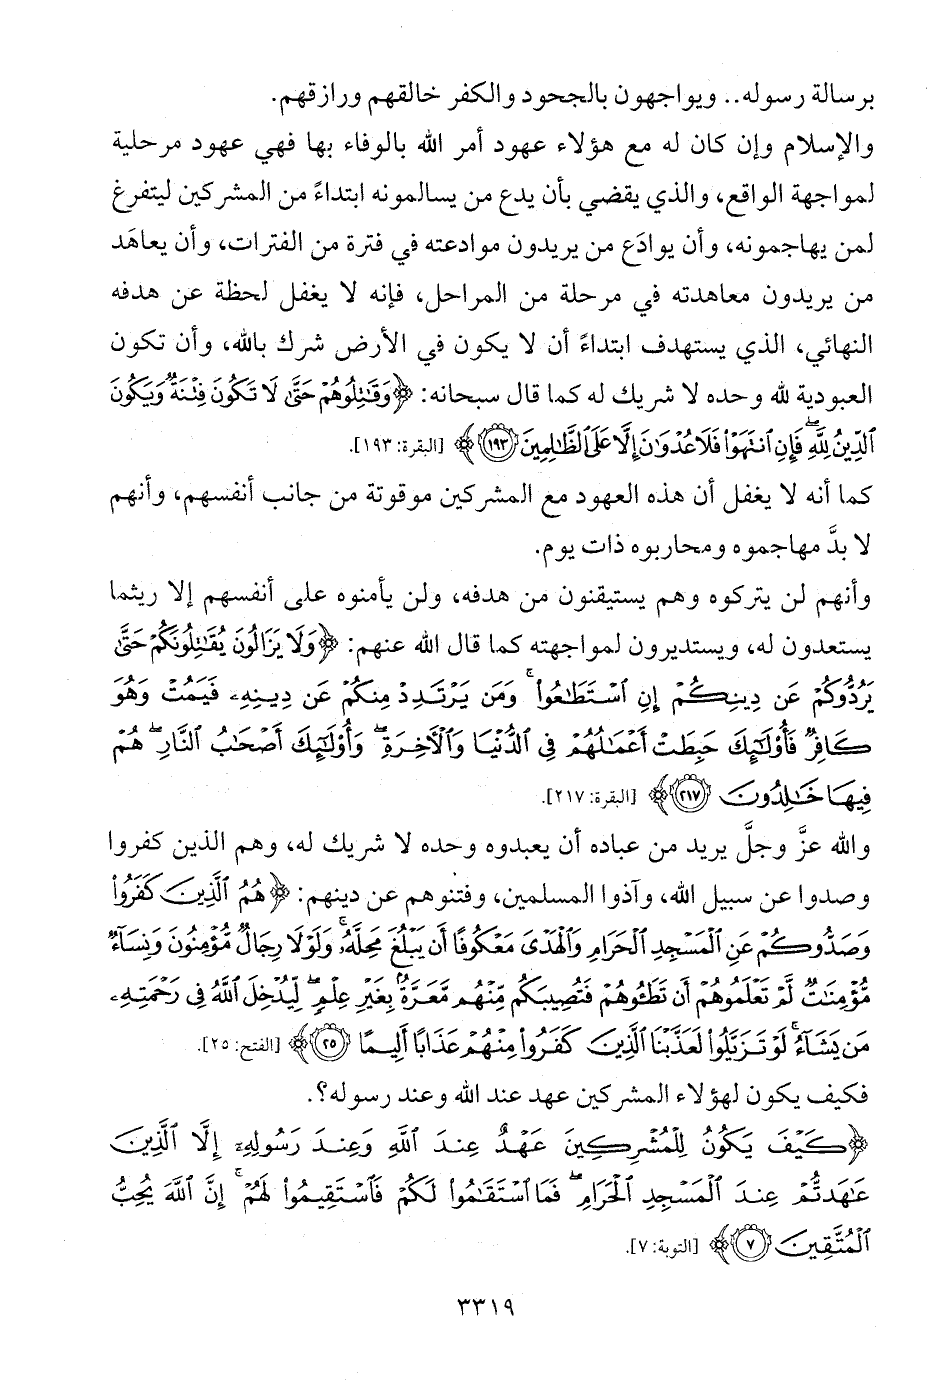 برسالة رسوله.. ويواجهون بالجحود والكفر خالقهم ورازقهم.
والإسلام وإن كان له مع هؤلاء عهود أمر الله بالوفاء بها فهي عهود مرحلية
لمواجهة الواقع، والذي يقضي بأن يدع من يسالمونه ابتداءً من المشركين ليتفرغ
لمن يهاجمونه، وأن يوادَع من يريدون موادعته في فترة من الفترات، وأن يعاهَد
من يريدون معاهدته في مرحلة من المراحل، فإنه لا يغفل لحظة عن هدفه
النهائي، الذي يستهدف ابتداءً أن لا يكون في الأرض شرك بالله، وأن تكون
العبودية لله وحده لا شريك له كما قال سبحانه: ﴿وَقَٰتِلُوهُمْ حَتَّىٰ لَا تَكُونَ فِتْنَةٌ وَيَكُونَ
ٱلدِّينُ لِلَّهِ ۖ فَإِنِ ٱنتَهَوْا۟ فَلَا عُدْوَٰنَ إِلَّا عَلَى ٱلظَّٰلِمِينَ ١٩٣﴾ [البقرة: ١٩٣].
كما أنه لا يغفل أن هذه العهود مع المشركين موقوتة من جانب أنفسهم، وأنهم
لا بدَّ مهاجموه ومحاربوه ذات يوم.
وأنهم لن يتركوه وهم يستيقنون من هدفه، ولن يأمنوه على أنفسهم إلا ريثما
يستعدون له، ويستديرون لمواجهته كما قال الله عنهم: ﴿وَلَا يَزَالُونَ يُقَٰتِلُونَكُمْ حَتَّىٰ
يَرُدُّوكُمْ عَن دِينِكُمْ إِنِ ٱسْتَطَٰعُوا۟ ۚ وَمَن يَرْتَدِدْ مِنكُمْ عَن دِينِهِۦ فَيَمُتْ وَهُوَ
كَافِرٌ فَأُو۟لَٰٓئِكَ حَبِطَتْ أَعْمَٰلُهُمْ فِى ٱلدُّنْيَا وَٱلْءَاخِرَةِ ۖ وَأُو۟لَٰٓئِكَ أَصْحَٰبُ ٱلنَّارِ ۖ هُمْ
فِيهَا خَٰلِدُونَ ٢١٧﴾ [البقرة: ٢١٧].
والله عزَّ وجلَّ يريد من عباده أن يعبدوه وحده لا شريك له، وهم الذين كفروا
وصدوا عن سبيل الله، وآذوا المسلمين، وفتنوهم عن دينهم: ﴿هُمُ ٱلَّذِينَ كَفَرُوا۟
وَصَدُّوكُمْ عَنِ ٱلْمَسْجِدِ ٱلْحَرَامِ وَٱلْهَدْىَ مَعْكُوفًا أَن يَبْلُغَ مَحِلَّهُۥ ۚ وَلَوْلَا رِجَالٌ مُّؤْمِنُونَ وَنِسَآءٌ
مُّؤْمِنَٰتٌ لَّمْ تَعْلَمُوهُمْ أَن تَطَـُٔوهُمْ فَتُصِيبَكُم مِّنْهُم مَّعَرَّةٌۢ بِغَيْرِ عِلْمٍ ۖ لِّيُدْخِلَ ٱللَّهُ فِى رَحْمَتِهِۦ
مَن يَشَآءُ ۚ لَوْ تَزَيَّلُوا۟ لَعَذَّبْنَا ٱلَّذِينَ كَفَرُوا۟ مِنْهُمْ عَذَابًا أَلِيمًا ٢٥﴾ [الفتح: ٢٥].
فكيف يكون لهؤلاء المشركين عهد عند الله وعند رسوله؟.
﴿كَيْفَ يَكُونُ لِلْمُشْرِكِينَ عَهْدٌ عِندَ ٱللَّهِ وَعِندَ رَسُولِهِۦٓ إِلَّا ٱلَّذِينَ
عَٰهَدتُّمْ عِندَ ٱلْمَسْجِدِ ٱلْحَرَامِ ۖ فَمَا ٱسْتَقَٰمُوا۟ لَكُمْ فَٱسْتَقِيمُوا۟ لَهُمْ ۚ إِنَّ ٱللَّهَ يُحِبُّ
ٱلْمُتَّقِينَ ٧﴾ [التوبة: ٧].
٣٣١٩